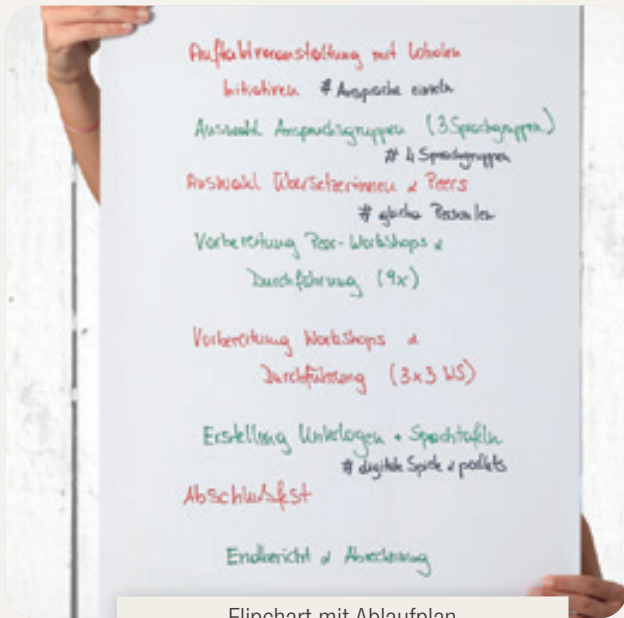 Auftaktveranstaltung mit lokalen
Initiativen # Ansprache einzeln
Auswahl Anspruchsgruppen (3 Sprachgruppen)
# 4 Sprachgruppen
Auswahl Übersetzerinnen & Peers
# gleiche Personen
Vorbereitung Peer-Workshops &
Durchführung (9x)
Vorbereitung Workshops &
Durchführung (3x3 WS)
Erstellung Unterlagen + Sprachtafeln
# digitale Spiele & padlets
Abschlussfest
Endbericht & Abrechnung
Flipchart mit Ablaufplan